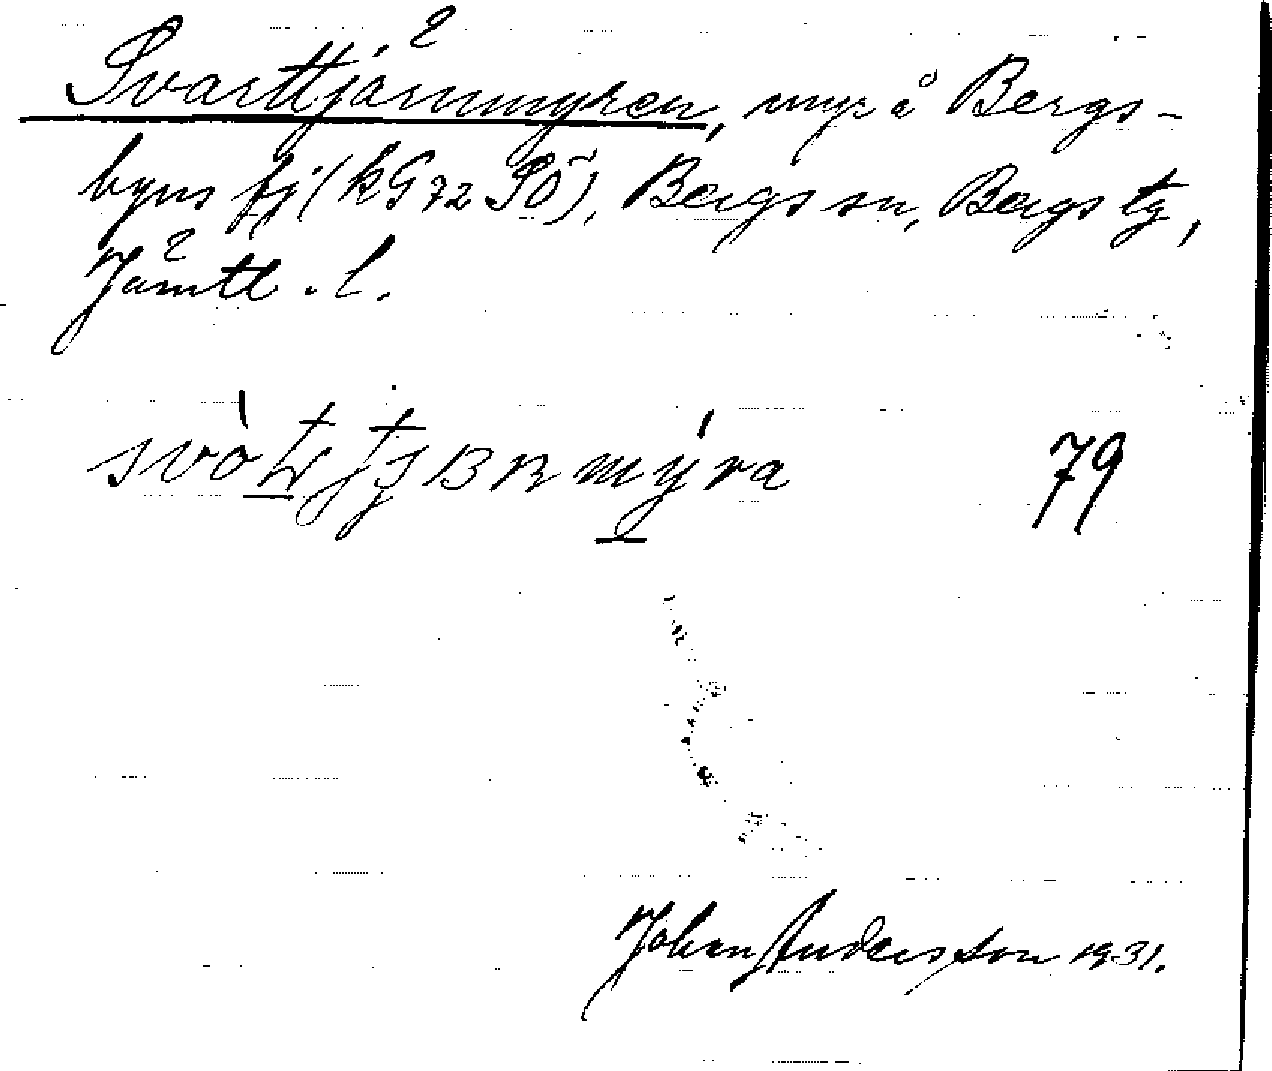 Svarttjärnmyren, myr å Bergs-
byns fj (kG 72 SÖ), Bergs sn, Bergs tg,
Jämtl. l.
79
Johan Andersson 1931.